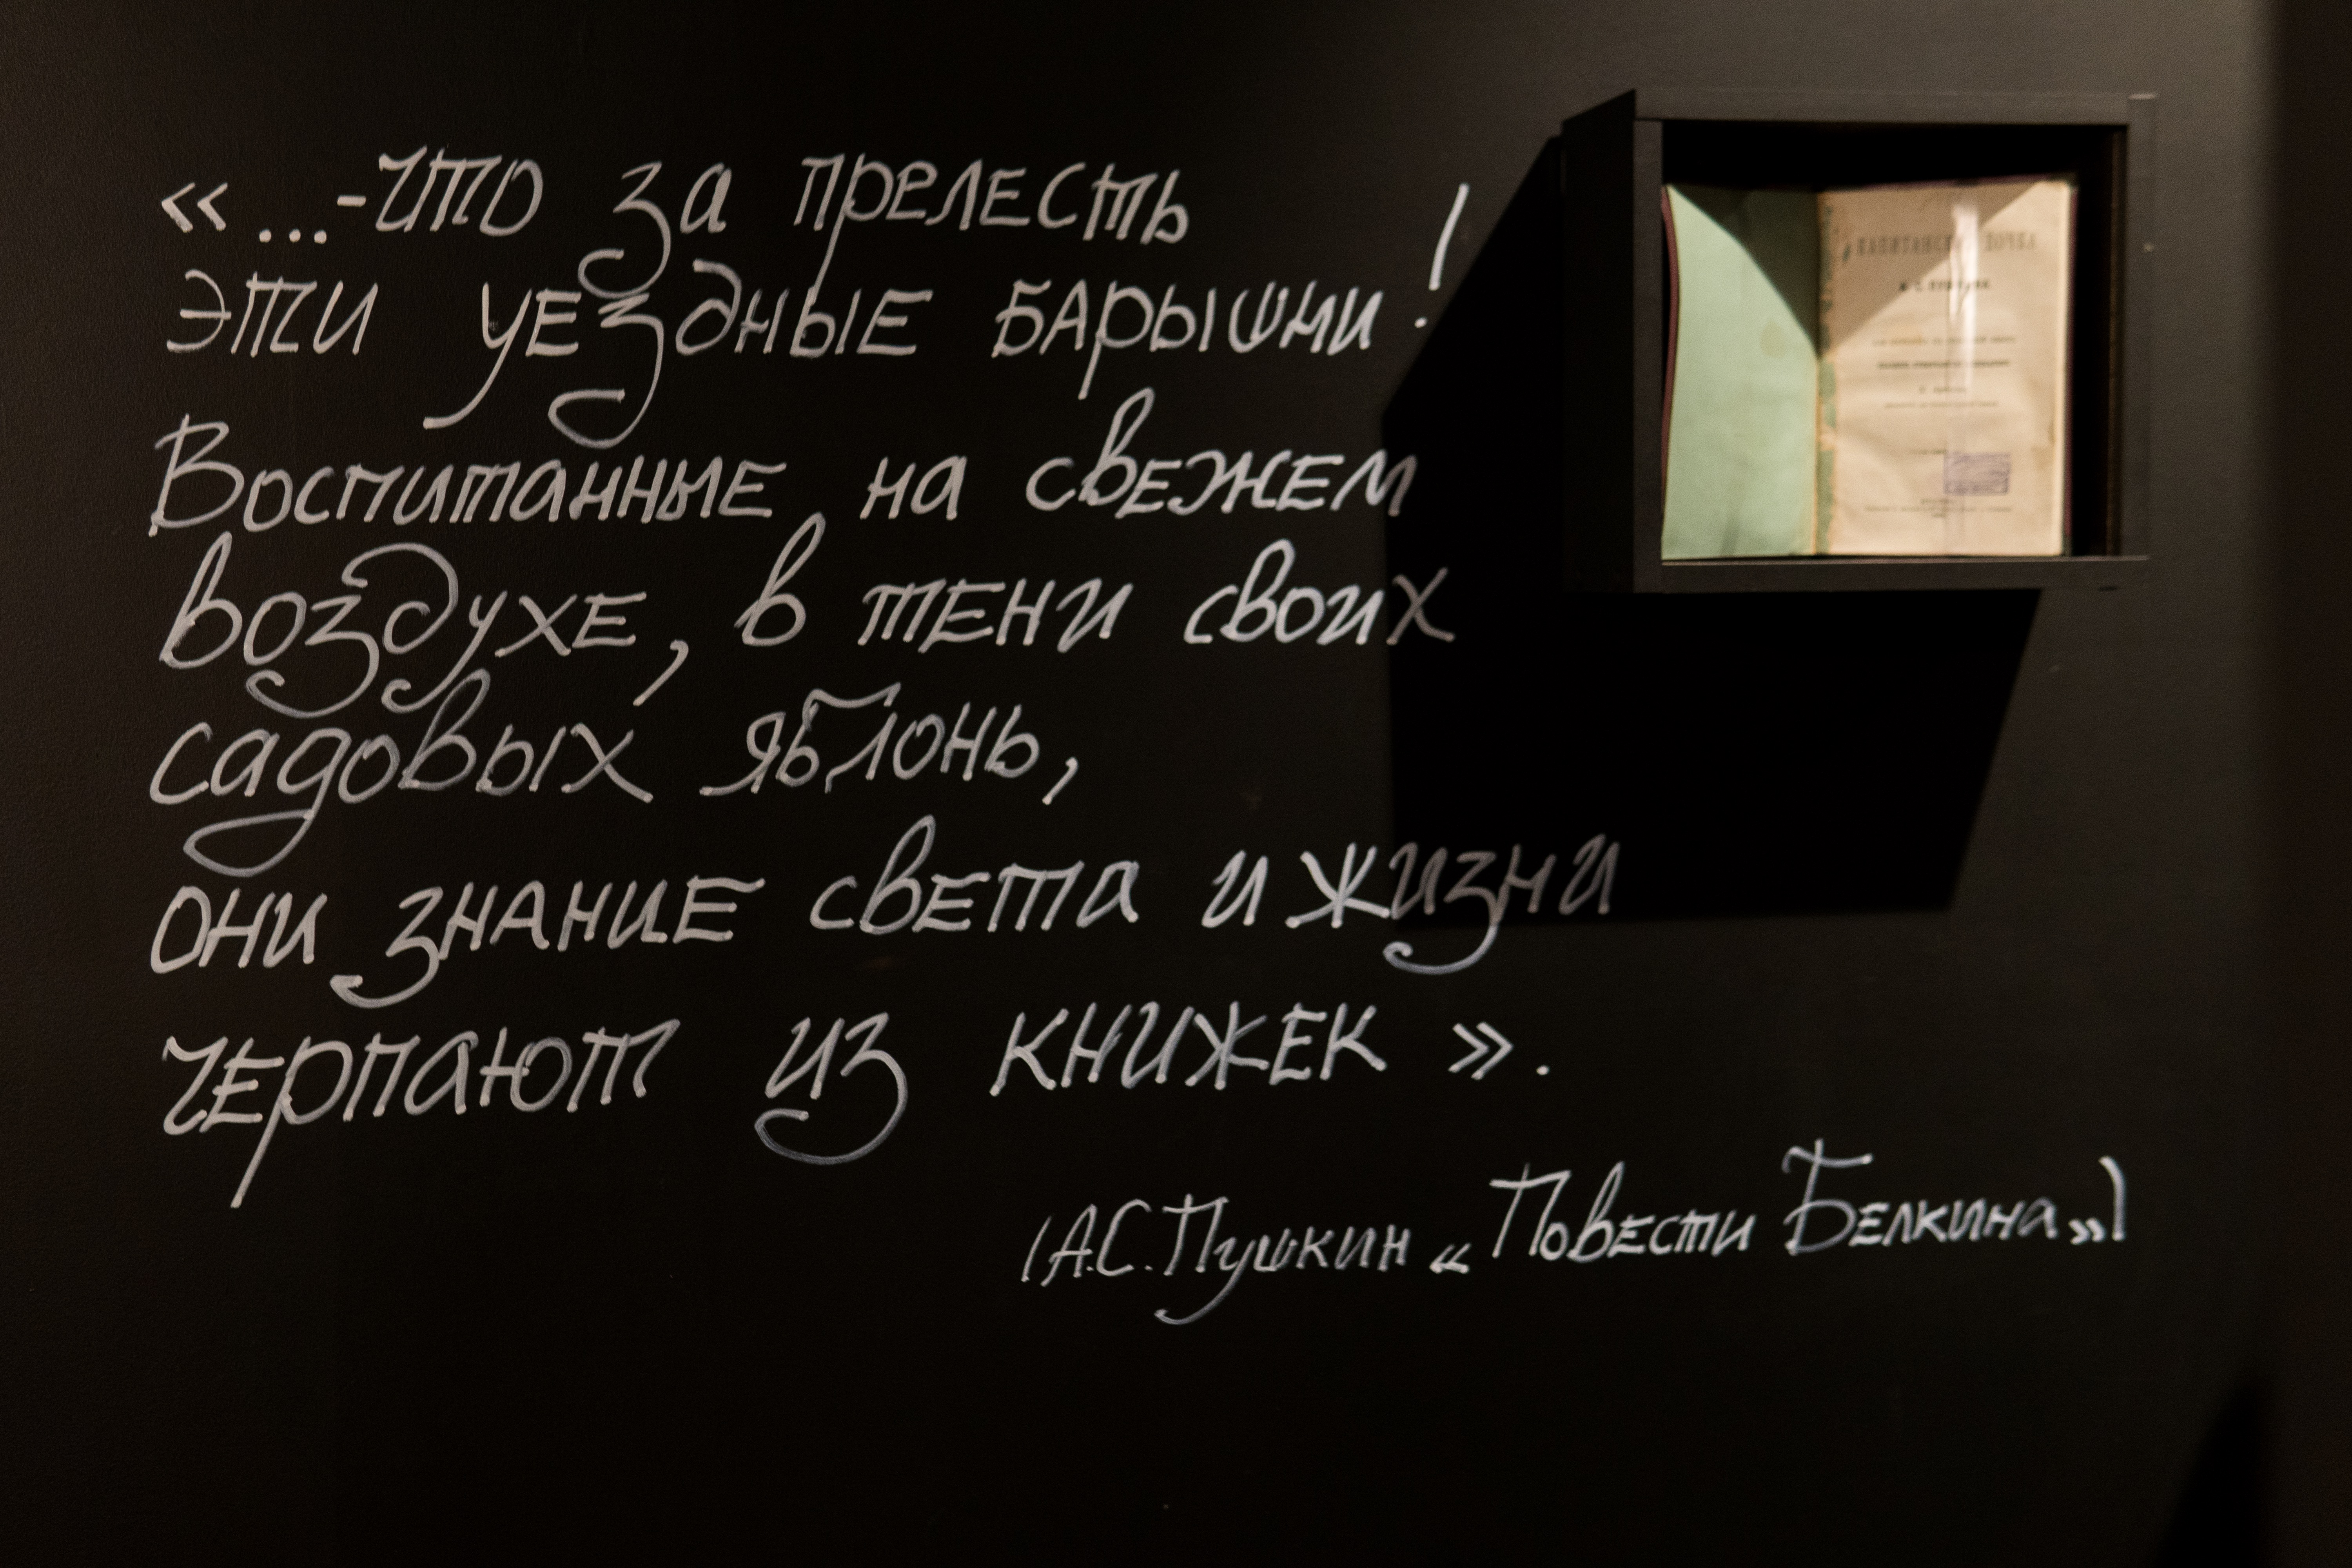 «...-что за прелесть
эти уездные барышни!
Воспитанные на свежем
воздухе, в тени своих
садовых яблонь,
они знание света и жизни
черпают из книжек».
(А.С. Пушкин «Повести Белкина»)